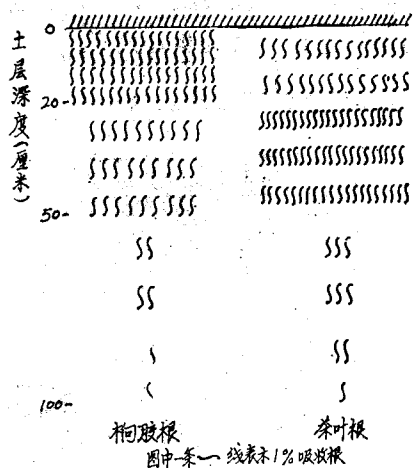 土层深度(厘米)
0
20-
50-
100-
橡胶根
茶叶根
图中一条〜线表示1%吸收根